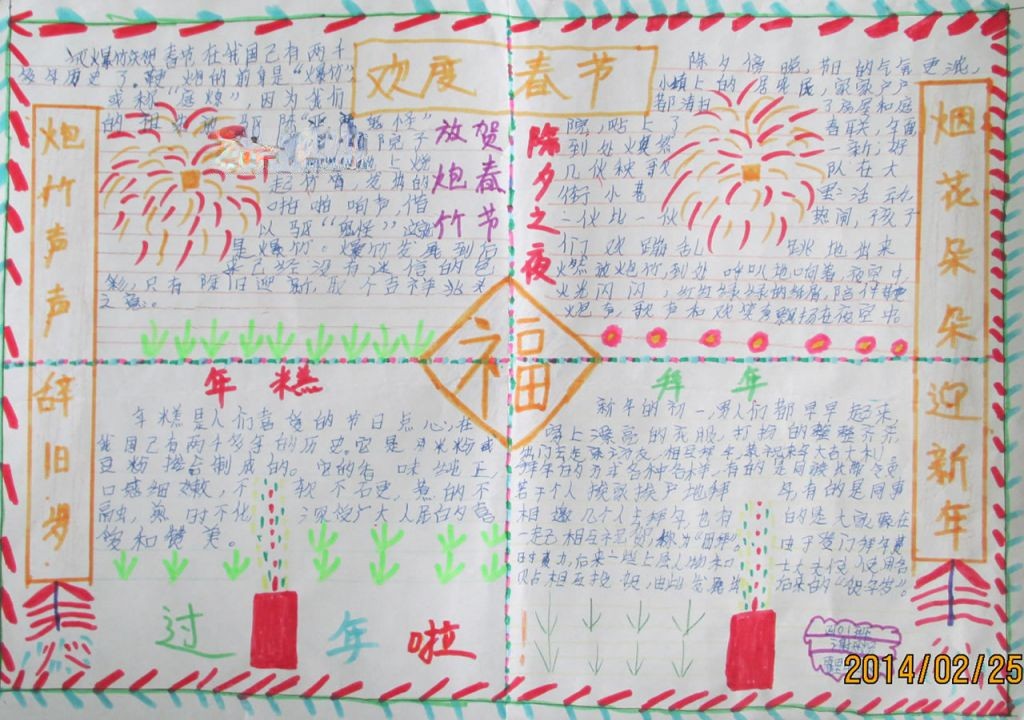 欢度 春节
炮竹声声辞旧岁
烟花朵朵迎新年
放炮竹
贺春节
放爆竹庆贺春节在我国已有两千
多年历史了。鞭炮的前身是“爆竹”
或称“庭燎”，因为我们
院子
上烧
起竹
的
啪啪响声，借
以驱“鬼怪”
是爆竹。爆竹发展到后
来已经没有迷信的色
彩，只有除旧迎新，取个吉祥兆头
之意。
除夕之夜
除夕傍晚，节日的气氛更浓，
小镇上的居民
家家户户
都清扫
了房屋和庭
院，贴上了
春联，年画
到处焕然
一新；好
几伙秧歌
队在大
街小巷
里活动
一伙比一伙
热闹，孩子
们欢蹦乱
跳地出来
燃放炮竹，到处呼叭地响着，夜空中
火光闪闪，红红绿绿的纸屑，陪伴鞭
炮声，歌声和欢笑声飘扬在夜空中
福
年糕
年糕是人们喜爱的节日点心，在
我国已有两千多年的历史。它是用米粉或
豆粉掺合制成的。它的香味纯正
口感细嫩，不软不硬，煮的不
融，蒸时不化，深受广大人民的喜
爱和赞美。
拜年
新年的初一，人们都早早起来
穿上漂亮的衣服，打扮的整整齐齐
出门去走亲访友，相互拜年，恭祝来年大吉大利。
拜年的方式各种各样，有的是同族长带领
若干人挨家挨户地拜年，有的是同事
相邀几个人去拜年，也有的是大家聚在
一起互相
称为“团拜”。由于登门拜年费
时费力，后来一些上层人物和士大夫便使用各
贴相互投
由此发展出后来的“贺年片”。
过年啦
2014/02/25